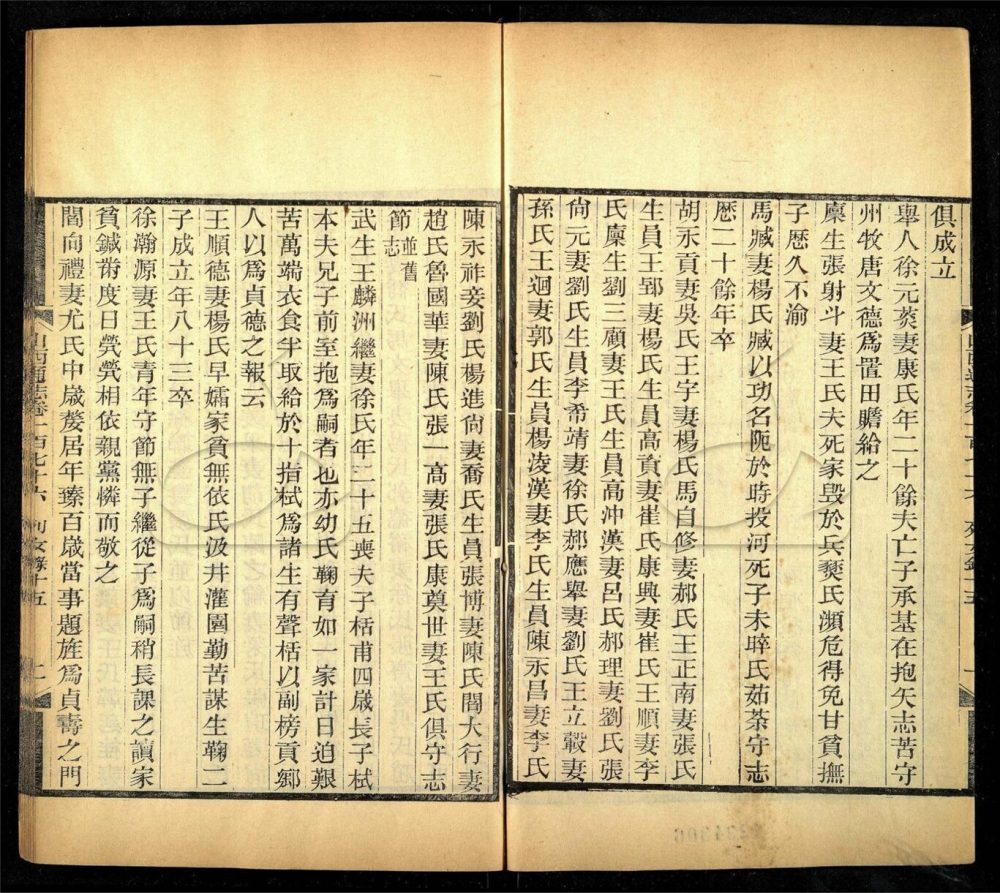 俱成立
舉人徐元葵妻康氏年二十餘夫亡子承基在抱矢志苦守
州牧唐文德爲置田贍給之
廩生張射斗妻王氏夫死家毀於兵燹氏瀕危得免甘貧撫
子歷久不渝
馬臧妻楊氏臧以功名阨於時投河死子未晬氏茹荼守志
歷二十餘年卒
胡永貢妻吳氏王宇妻楊氏馬自修妻郝氏王正南妻張氏
生員王郢妻楊氏生員高貢妻崔氏康興妻崔氏王順妻李
氏廩生劉三顧妻王氏生員高沖漢妻呂氏郝理妻劉氏張
尙元妻劉氏生員李希靖妻徐氏郝應舉妻劉氏王立轂妻
孫氏王迴妻郭氏生員楊凌漢妻李氏生員陳永昌妻李氏
陳永祚妾劉氏楊進尙妻喬氏生員張博妻陳氏閻大行妻
趙氏魯國華妻陳氏張一高妻張氏康奠世妻王氏俱守志
節並舊志
武生王麟洲繼妻徐氏年二十五喪夫子栝甫四歲長子栻
本夫兄子前室抱爲嗣者也亦幼氏鞠育如一家計日迫艱
苦萬端衣食半取給於十指栻爲諸生有聲栝以副榜貢鄉
人以爲貞德之報云
王順德妻楊氏早孀家貧無依氏汲井灌園勤苦謀生鞠二
子成立年八十三卒
徐瀚源妻王氏青年守節無子繼從子爲嗣稍長課之讀家
貧鍼黹度日煢煢相依親黨憐而敬之
閻向禮妻尤氏中歲嫠居年臻百歲當事題旌爲貞壽之門
山西通志卷一百七十六 列女錄十五